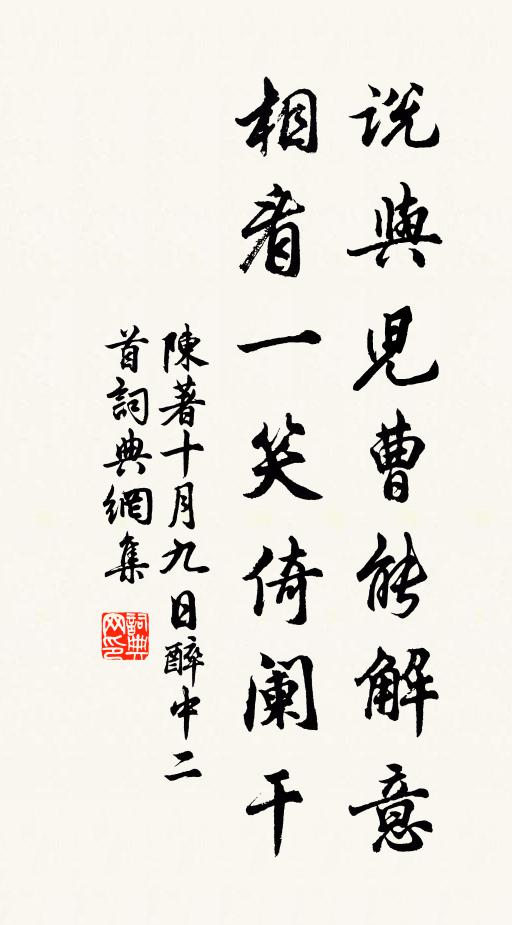 説與兒曹能解意
相看一笑倚闌干
陳著十月九日醉中二
首詞典網集
詞典
网印